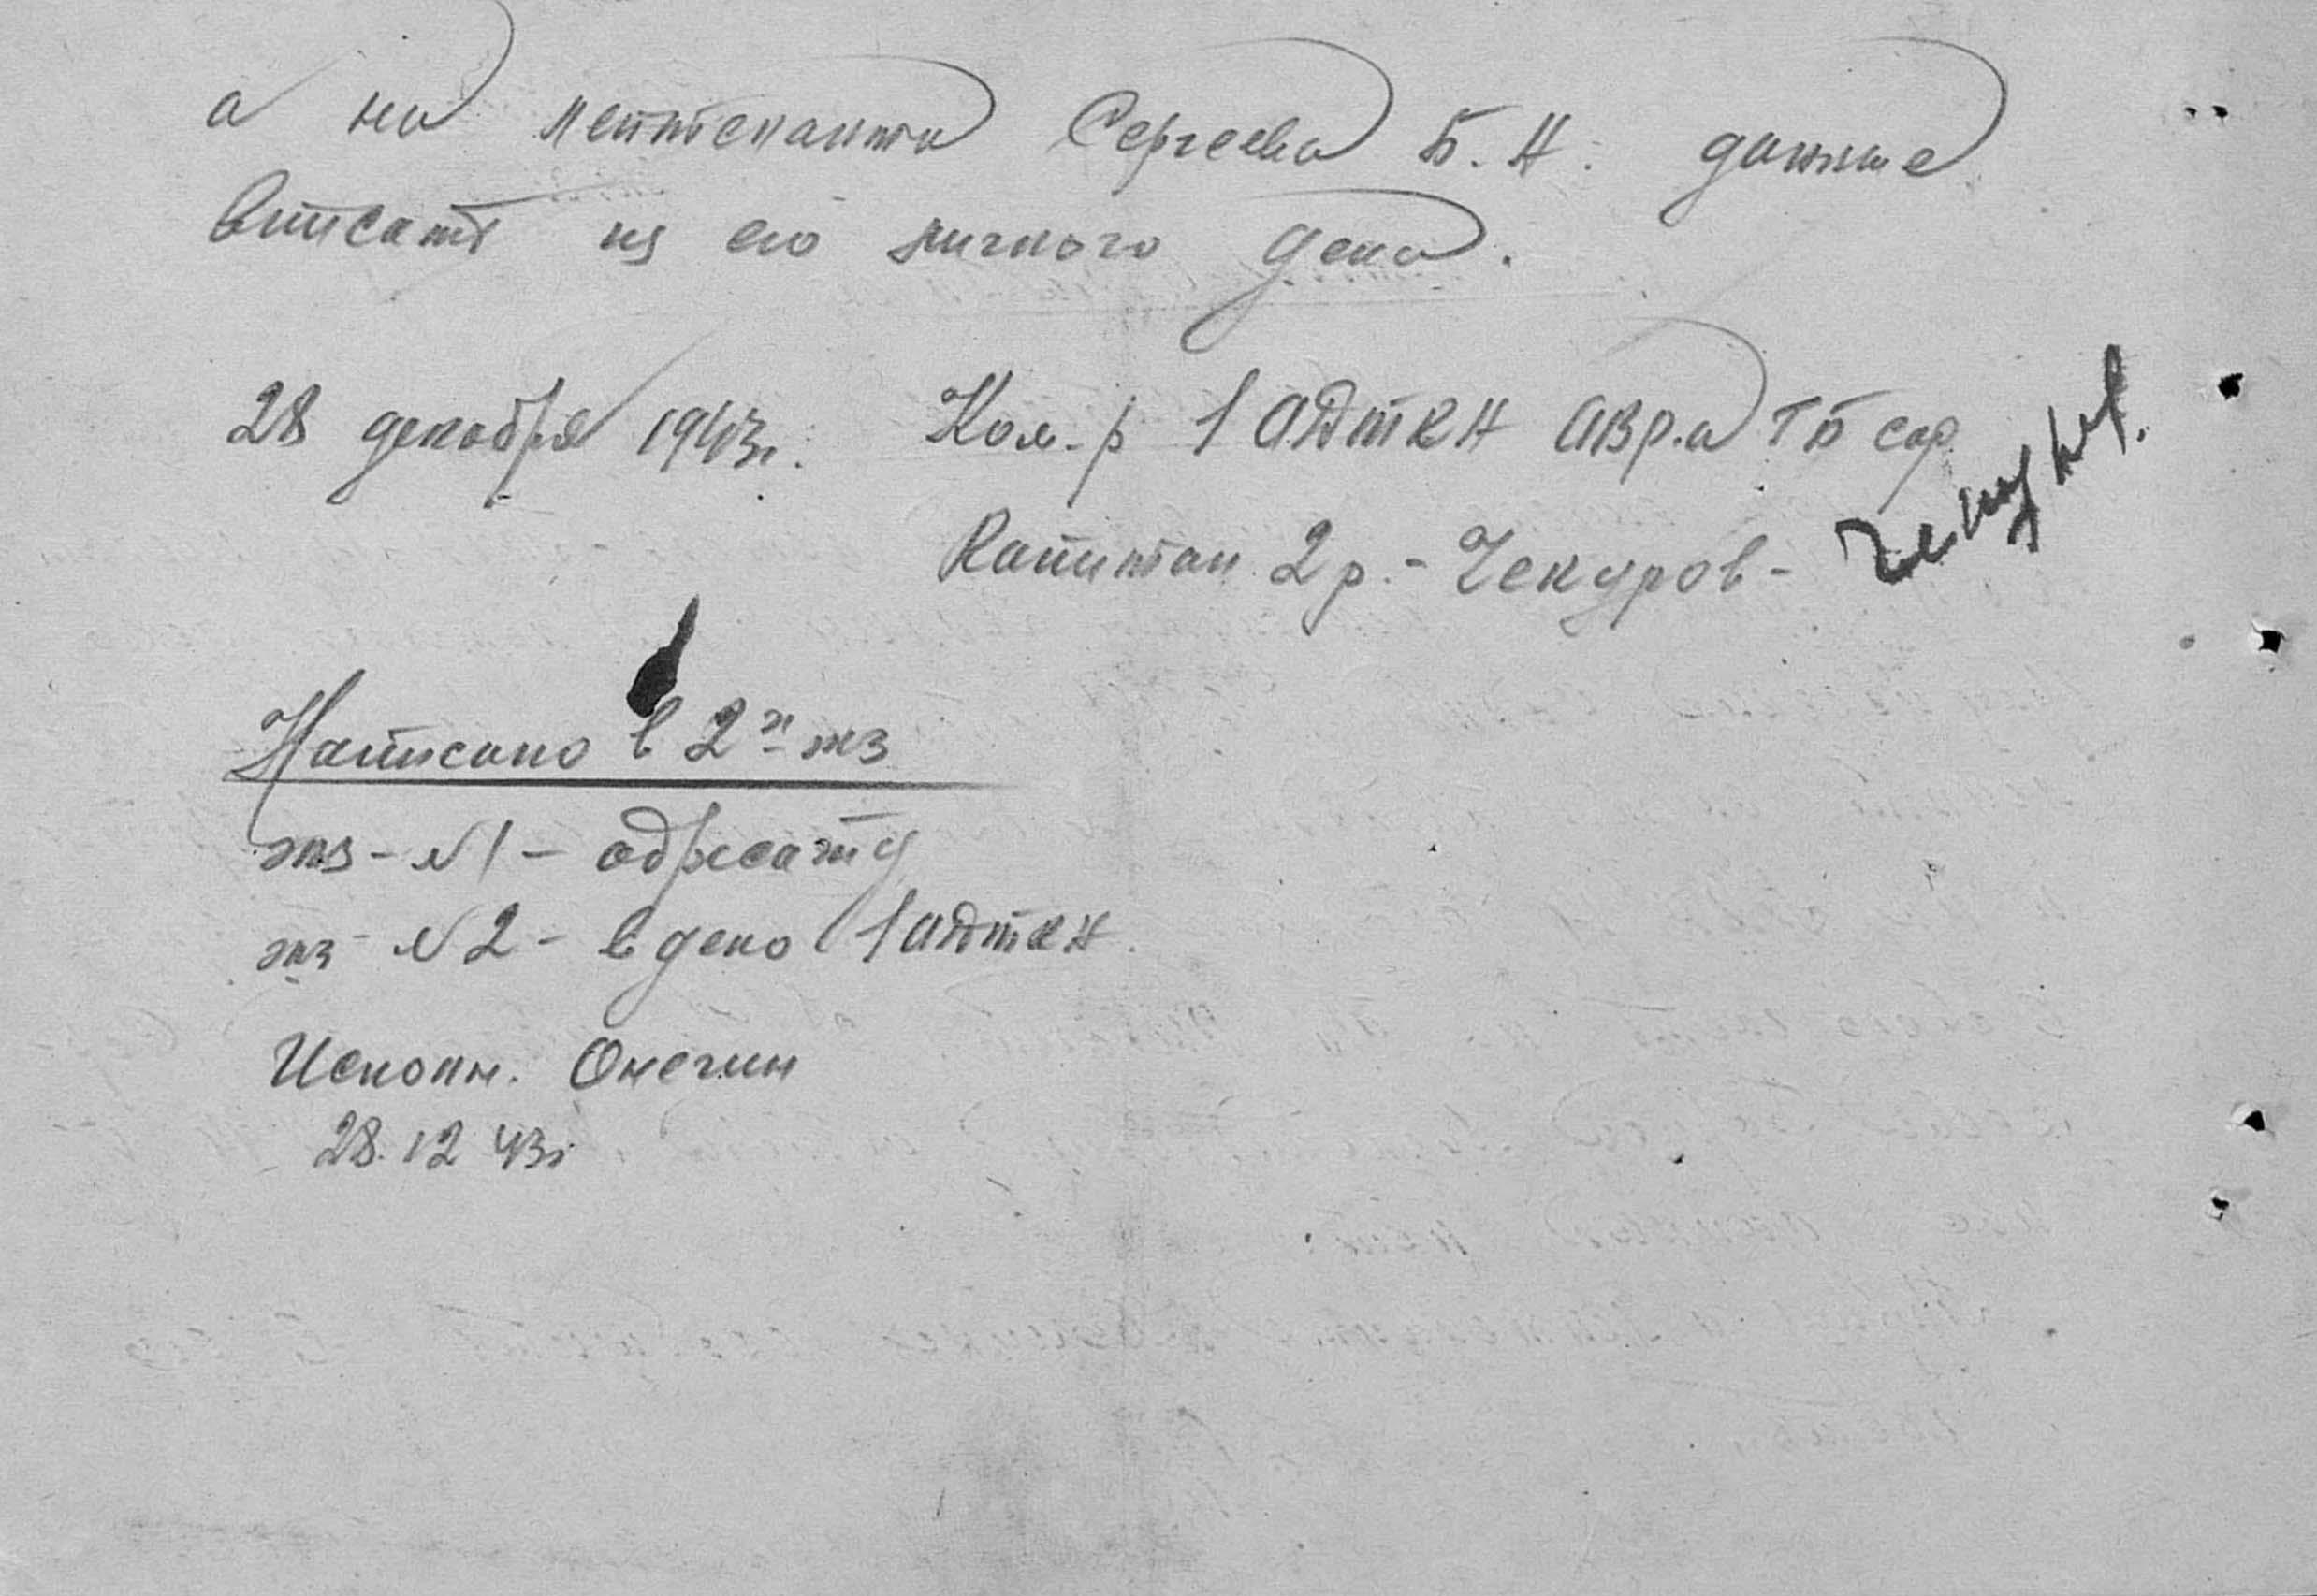 а на лейтенанта Сергеева Б.Н. данные
вписать из его личного дела.
28 декабря 1943г. Ком-р 1 АДТКН
Капитан 2р. - Чекуров -
Написано в 2х экз
экз - №1 - адресату
экз - №2 - в дело 1 АДТКН.
Исполн. Онегин
28.12 43г